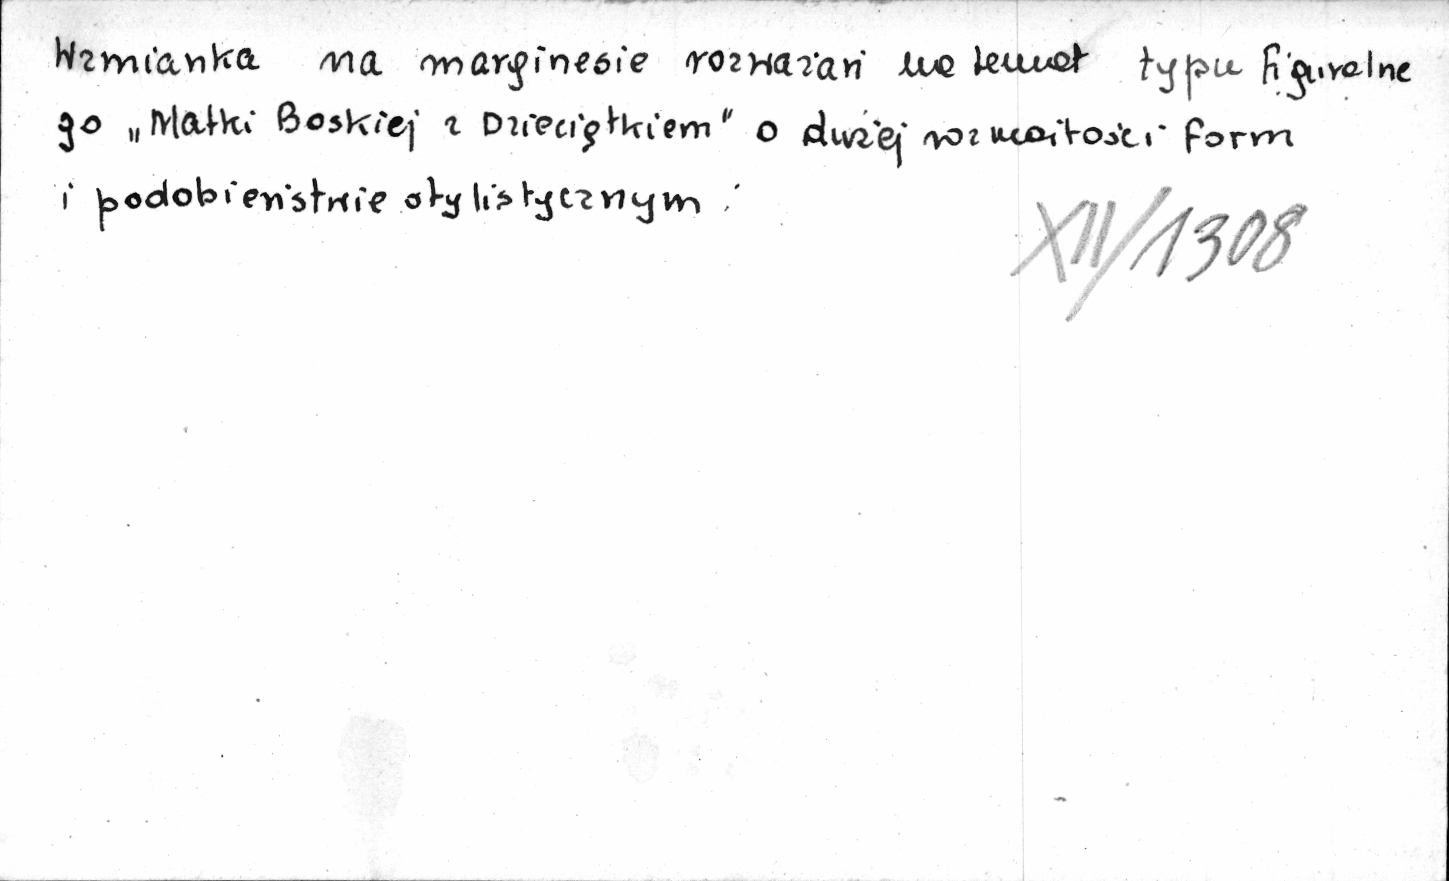 Wzmianka na marginesie rozważań na temat typu figuralne
go „Matki Boskiej z Dzieciątkiem" o dużej rozmaitości form
i podobieństwie stylistycznym.
XII/1308